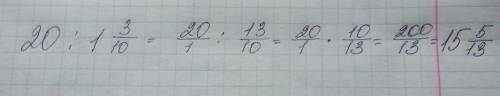 20 : 1 3/10 = 20/1 : 13/10 = 20/1 · 10/13 = 200/13 = 15 5/13